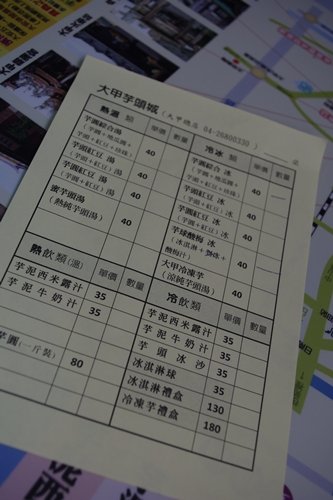 大甲芋頭城（大甲總店 04-26800330）
熱湯 類 單價 數量
芋圓綜合湯
（芋圓＋地瓜圓＋
芋圓＋紅豆＋珍珠） 40
芋頭紅豆 湯
（芋頭＋紅豆） 40
芋圓紅豆 湯
（芋圓＋紅豆） 40
蜜芋頭湯
（熱純芋頭湯） 40
冷冰 類 單價 數量
芋圓綜合 冰 40
芋頭紅豆 冰
（芋頭＋紅豆） 40
芋圓紅豆 冰
（芋圓＋紅豆） 40
芋球酸梅 冰
（冰淇淋＋
酸梅汁） 40
大甲冷凍芋
（涼純芋頭湯） 40
熱飲類（溫） 單價 數量
芋泥西米露汁 35
芋泥牛奶汁 35
芋圓（一斤裝） 80
冷飲類 單價 數量
芋泥西米露汁 35
芋泥牛奶汁 35
芋頭冰沙 35
冰淇淋球 35
冰淇淋禮盒 130
冷凍芋禮盒 180